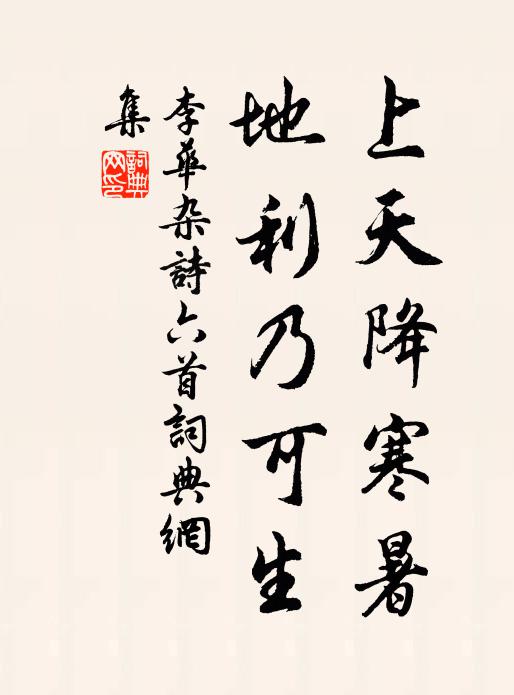 上天降寒暑
地利乃可生
李華杂詩六首詞典網
集
詞典
网印